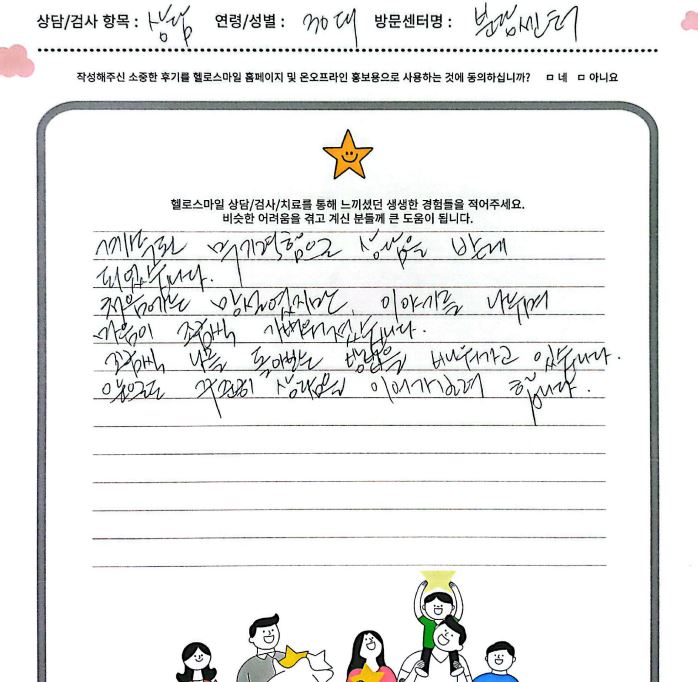 상담/검사 항목 : 상담 연령/성별 : 30대 방문센터명 : 분당센터
작성해주신 소중한 후기를 헬로스마일 홈페이지 및 온오프라인 홍보용으로 사용하는 것에 동의하십니까? ㅁ 네 ㅁ 아니요
헬로스마일 상담/검사/치료를 통해 느끼셨던 생생한 경험들을 적어주세요.
비슷한 어려움을 겪고 계신 분들께 큰 도움이 됩니다.
계속된 무기력함으로 상담을 받게
되었습니다.
처음에는 망설였지만, 이야기를 나누며
마음이 조금씩 가벼워졌습니다.
조금씩 나를 돌아보는 방법을 배워가고 있습니다.
앞으로도 꾸준히 상담을 이어가보려 합니다.